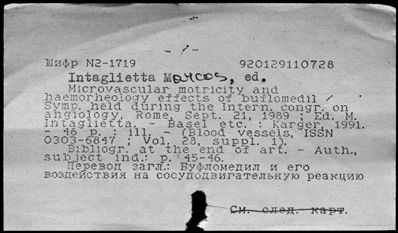 - / -
Шифр N2-1719 920129110728
Intaglietta Marcos, ed.
Microvascular motricity and
haemorheology effects of buflomedil /
Symp. held during the Intern. congr. on
angiology, Rome, Sept. 21, 1989 ; Ed. M.
Intaglietta. - Basel etc. : Karger, 1991.
- 46 p. : ill. - (Blood vessels, ISSN
0303-6847 ; Vol. 28, suppl. 1).
Bibliogr. at the end of art. - Auth.,
subject ind.: p. 45-46.
Перевод загл.: Буфломедил и его
воздействия на сосудодвигательную реакцию
См. след. карт.